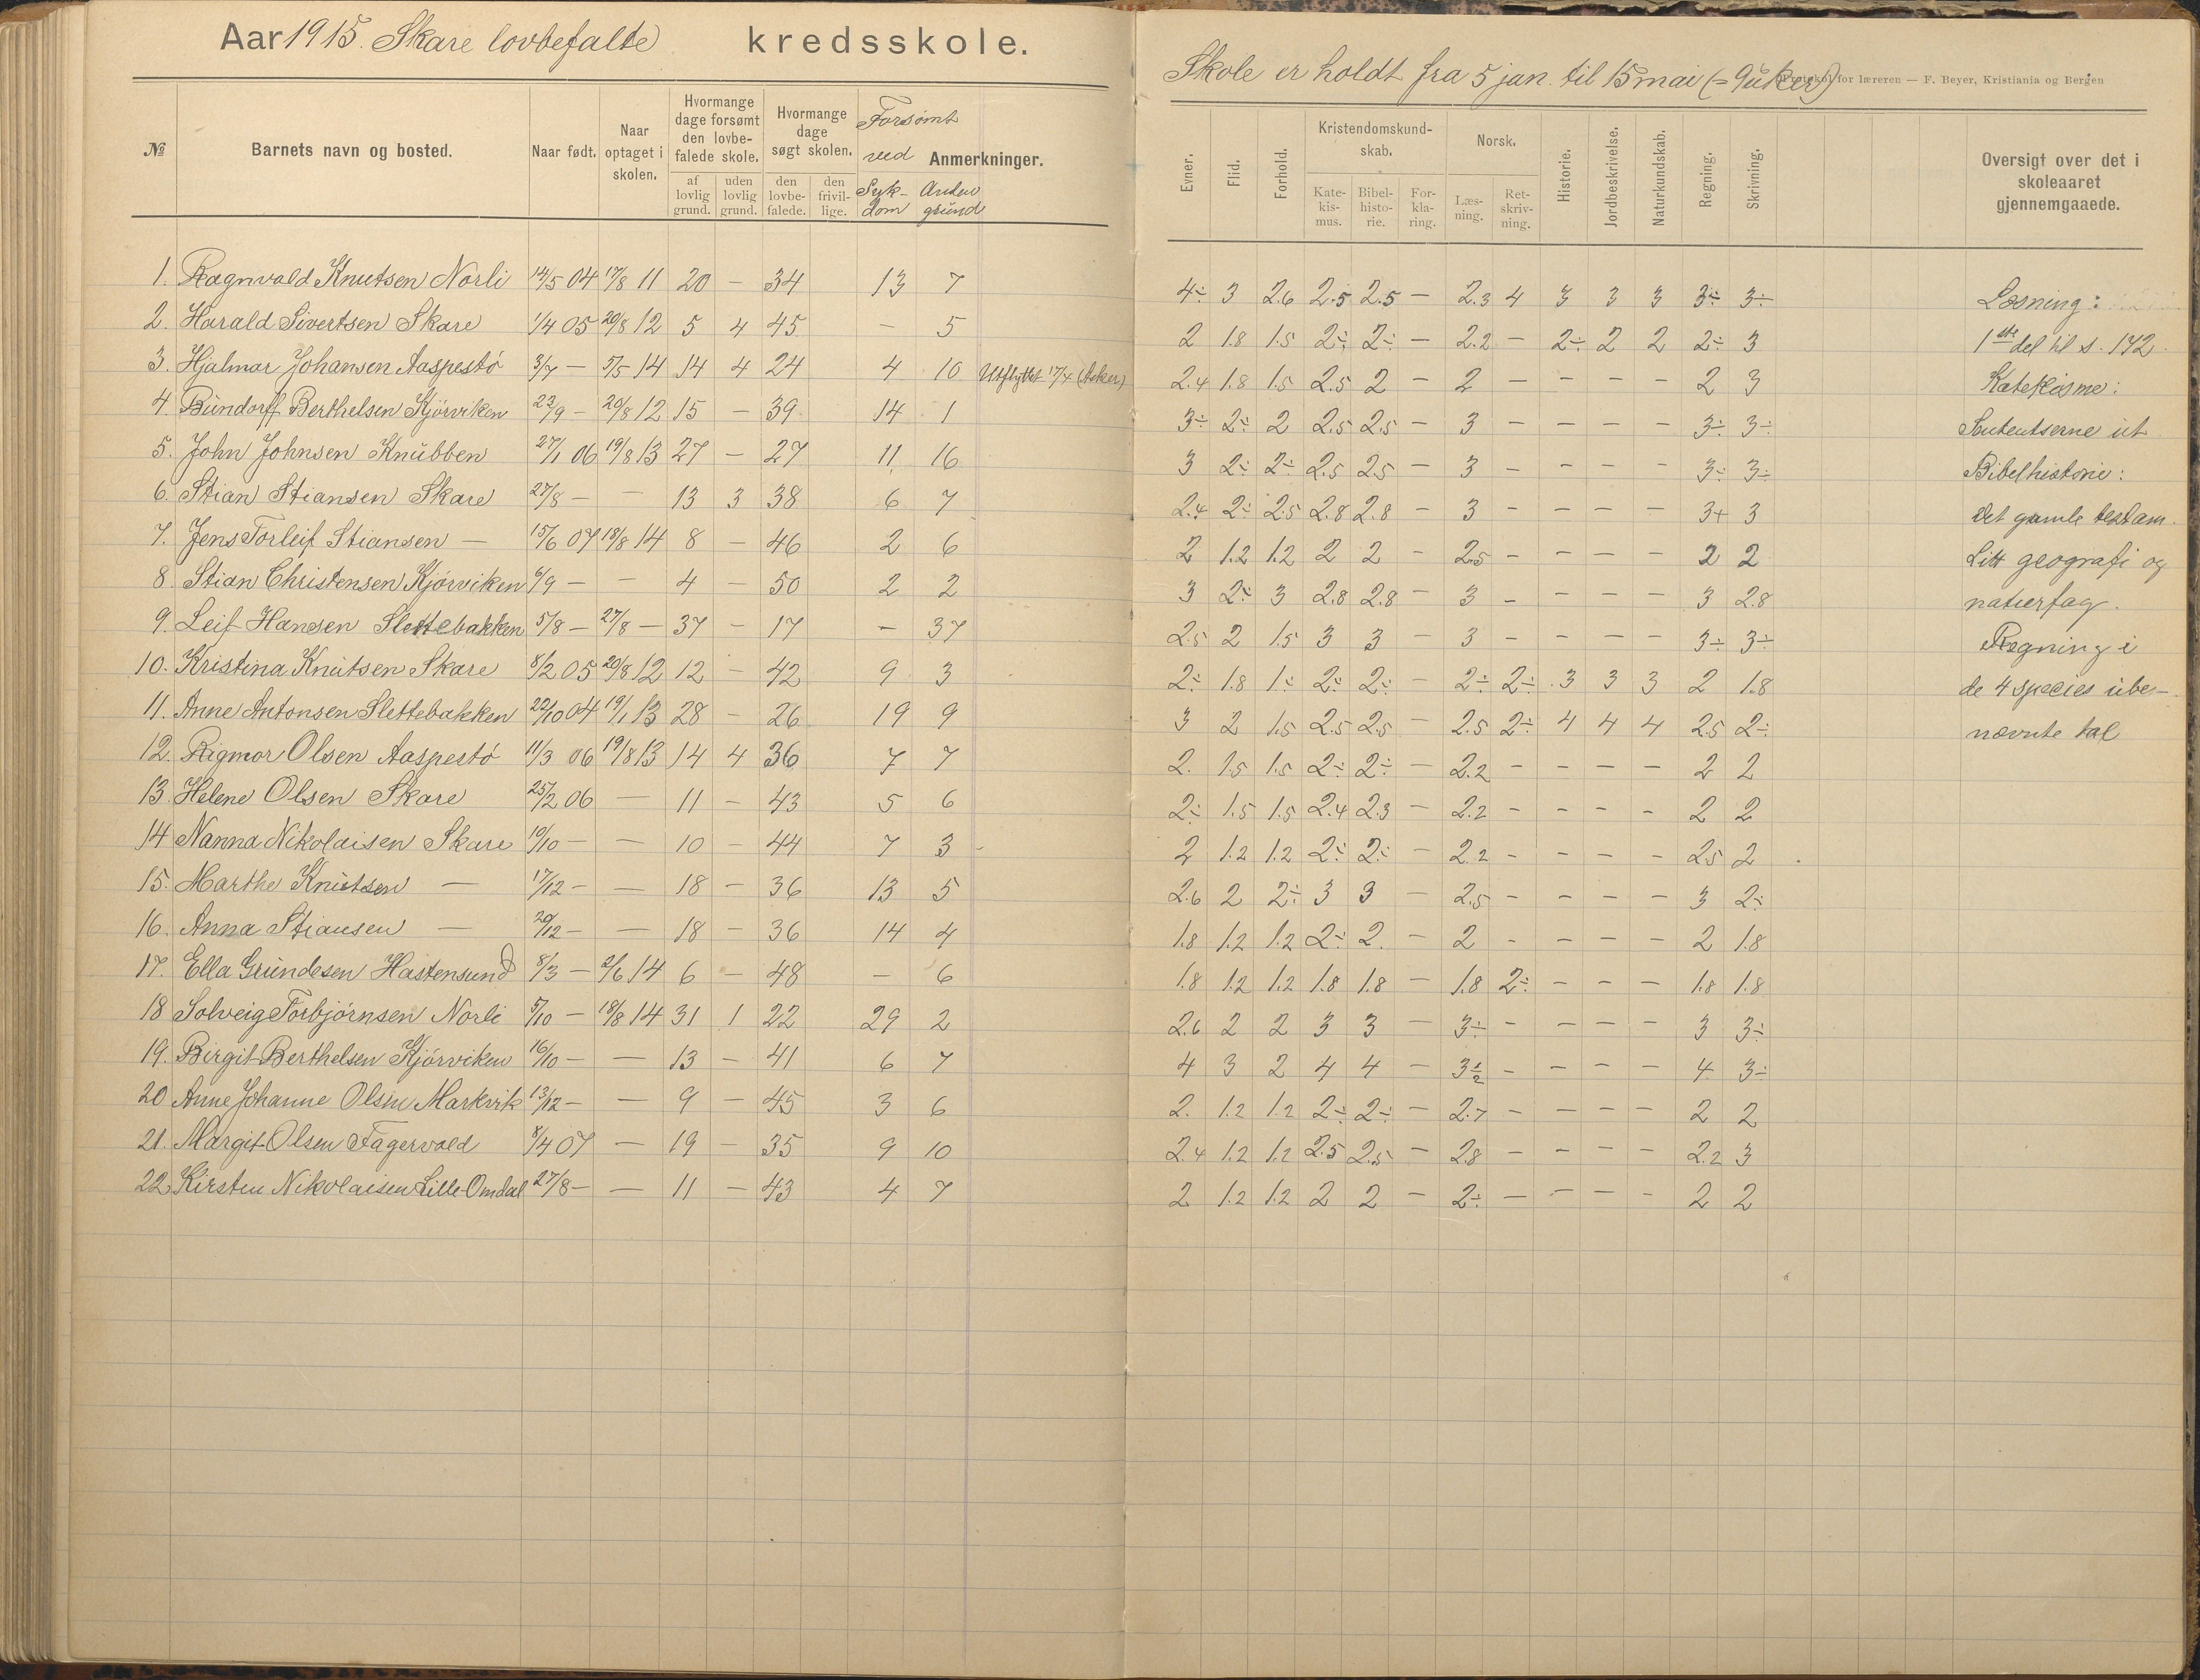 Aar 1915. Skare lovbefalte kredsskole.
№ Barnets navn og bosted. Naar født. Naar optaget i skolen. Hvormange dage forsømt den lovbefalede skole. af lovlig grund. uden lovlig grund. Hvormange dage søgt skolen. den lovbefalede. den frivillige. Forsømt ved Sykdom Anden grund Anmerkninger.
1. Ragnvald Knutsen Norli 14/5 04 17/8 11 20 – 34 13 7
2. Harald Sivertsen Skare 1/4 05 20/8 12 5 4 45 – 5
3. Hjalmar Johansen Aaspestø 3/7 – 5/5 14 14 4 24 4 10 Utflyttet 17/4 (Asker)
4. Bündorff Berthelsen Kjørviken 23/9 – 20/8 12 15 – 39 14 1
5. John Johnsen Knubben 27/1 06 19/8 13 27 – 27 11 16
6. Stian Stiansen Skare 27/8 – – 13 3 38 6 7
7. Jens Torleif Stiansen — 15/6 07 18/8 14 8 – 46 2 6
8. Stian Christensen Kjørviken 6/9 – – 4 – 50 2 2
9. Leif Hansen Slettebakken 5/8 – 27/8 – 37 – 17 – 37
10. Kristina Knutsen Skare 8/2 05 20/8 12 12 – 42 9 3
11. Anne Antonsen Slettebakken 22/10 04 19/1 13 28 – 26 19 9
12. Rigmor Olsen Aaspestø 11/3 06 19/8 13 14 4 36 7 7
13 Helene Olsen Skare 25/2 06 — 11 – 43 5 6
14 Nanna Nikolaisen Skare 10/10 – – 10 – 44 7 3
15. Marthe Knutsen — 17/12 – – 18 – 36 13 5
16. Anna Stiansen — 20/12 – – 18 – 36 14 4
17. Ella Gundesen Hastensund 8/3 – 2/6 14 6 – 48 – 6
18 Solveig Torbjørnsen Norli 5/10 – 18/8 14 31 1 22 29 2
19. Birgit Berthelsen Kjørviken 16/10 – – 13 – 41 6 7
20 Anne Johanne Olsen Markvik 13/12 – – 9 – 45 3 6
21. Margit Olsen Fagervold 8/4 07 – 19 – 35 9 10
22. Kirsten Nikolaisen Lille-Omdal 27/8 – – 11 – 43 4 7
Skole er holdt fra 5 jan. til 15 mai (= 9 uker)
for læreren — F. Beyer, Kristiania og Bergen
Evner. Flid. Forhold. Kristendomskundskab. Katekismus. Bibelhistorie. Forklaring. Norsk. Læsning. Retskrivning. Historie. Jordbeskrivelse. Naturkundskab. Regning. Skrivning. Oversigt over det i skoleaaret gjennemgaaede.
4÷ 3 2.6 2.5 2.5 – 2.3 4 3 3 3 3÷ 3÷ Læsning:
2 1.8 1.5 2÷ 2÷ – 2.2 – 2÷ 2 2 2÷ 3 1ste del til s. 172.
2.4 1.8 1.5 2.5 2 – 2 – – – – 2 3 Katekisme:
3÷ 2÷ 2 2.5 2.5 – 3 – – – – 3÷ 3÷ Sententserne ut
3 2÷ 2÷ 2.5 2.5 – 3 – – – – 3÷ 3÷ Bibelhistorie:
2.4 2÷ 2.5 2.8 2.8 – 3 – – – – 3+ 3 det gamle testam.
2 1.2 1.2 2 2 – 2.5 – – – – 2 2 Litt geografi og
3 2÷ 3 2.8 2.8 – 3 – – – – 3 2.8 naturfag.
2.5 2 1.5 3 3 – 3 – – – – 3÷ 3÷ Regning i
2÷ 1.8 1÷ 2÷ 2÷ – 2÷ 2÷ 3 3 3 2 1.8 de 4 species ube-
3 2 1.5 2.5 2.5 – 2.5 2÷ 4 4 4 2.5 2÷ nævnte tal
2. 1.5 1.5 2÷ 2÷ – 2.2 – – – – 2 2
2÷ 1.5 1.5 2.4 2.3 – 2.2 – – – – 2 2
2 1.2 1.2 2÷ 2÷ – 2.2 – – – – 2.5 2
2.6 2 2÷ 3 3 – 2.5 – – – – 3 2÷
1.8 1.2 1.2 2÷ 2. – 2 – – – – 2 1.8
1.8 1.2 1.2 1.8 1.8 – 1.8 2÷ – – – 1.8 1.8
2.6 2 2 3 3 – 3÷ – – – – 3 3÷
4 3 2 4 4 – 3½ – – – – 4 3÷
2. 1.2 1.2 2÷ 2÷ – 2.7 – – – – 2 2
2.4 1.2 1.2 2.5 2.5 – 2.8 – – – – 2.2 3
2 1.2 1.2 2 2 – 2÷ – – – – 2 2